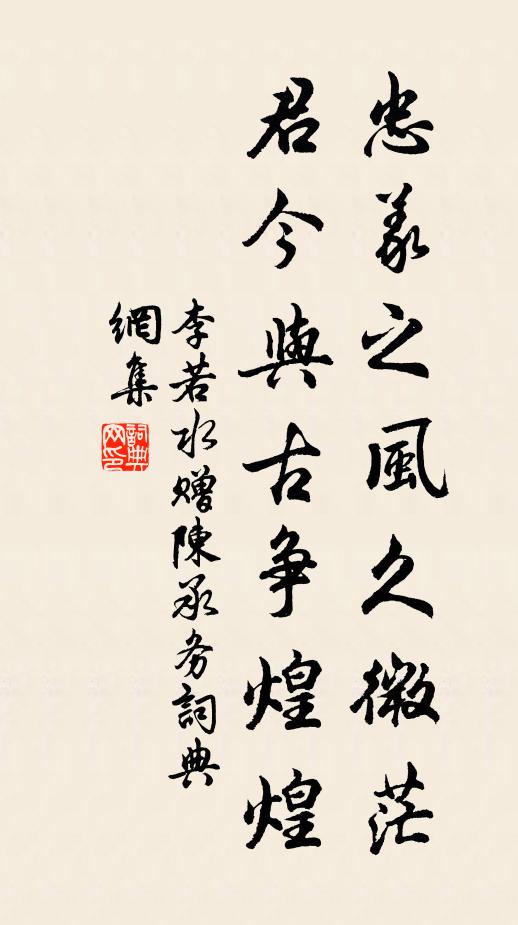 忠義之風久微茫
君今與古争煌煌
李若水赠陳承务詞典
網集
詞典网印